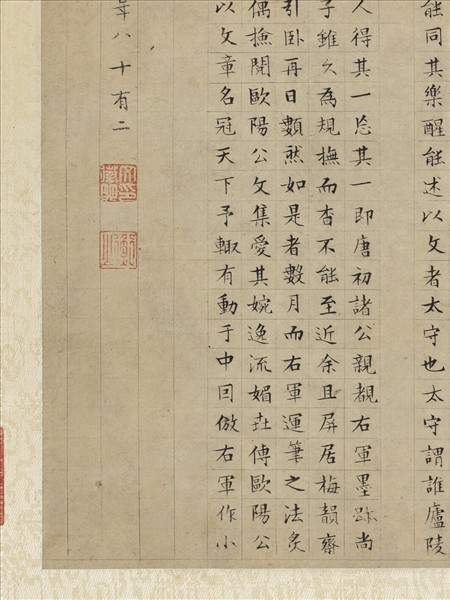 能同其樂醒能述以文者太守也太守謂誰廬陵
人得其一忘其一即唐初諸公親覩右軍墨跡尚
子雖久為規撫而杳不能至近余且屏居梅韻齋
引臥再日數然如是者數月而右軍運筆之法
偶撿閱歐陽公文集愛其婉逸流媚世傳歐陽公
以文章名冠天下予輒有動于中因倣右軍作小
年八十有二